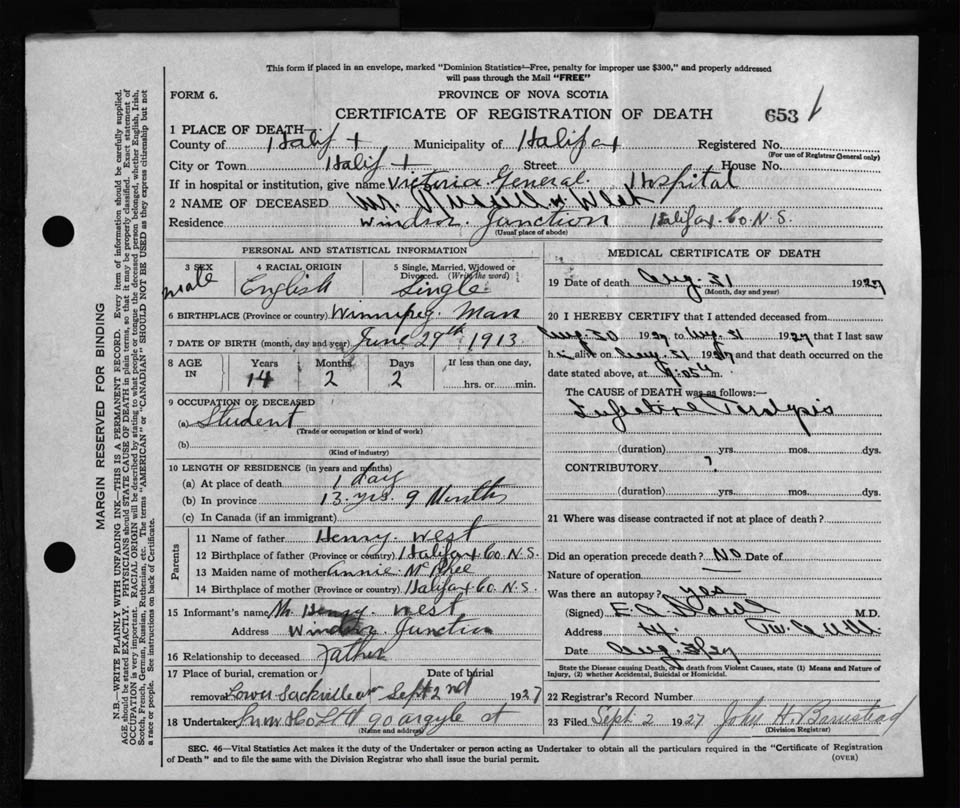 This form if placed in an envelope, marked "Dominion Statistics—Free, penalty for improper use $300," and properly addressed
will pass through the Mail "FREE"
FORM 6.
PROVINCE OF NOVA SCOTIA
CERTIFICATE OF REGISTRATION OF DEATH 653 1
MARGIN RESERVED FOR BINDING
N.B.—WRITE PLAINLY WITH UNFADING INK—THIS IS A PERMANENT RECORD. Every item of information should be carefully supplied.
AGE should be stated EXACTLY. PHYSICIANS should STATE CAUSE OF DEATH in plain terms, so that it may be properly classified. Exact statement of
OCCUPATION is very important. RACIAL ORIGIN will be described by stating to what people or tongue the deceased person belonged, whether English, Irish,
Scotch, French, German, Russian, Ruthenian, etc. The terms "AMERICAN" or "CANADIAN" SHOULD NOT BE USED as they express citizenship but not
a race or people. See instructions on back of Certificate.
1 PLACE OF DEATH—
County of Halifax Municipality of Halifax Registered No.
(For use of Registrar General only)
City or Town Halifax Street House No.
If in hospital or institution, give name Victoria General Hospital
2 NAME OF DECEASED Mr. Russell West
Residence Windsor Junction Halifax Co. N.S.
(Usual place of abode)
PERSONAL AND STATISTICAL INFORMATION
3 SEX
male
4 RACIAL ORIGIN
English
5 Single, Married, Widowed or
Divorced. (Write the word)
Single
6 BIRTHPLACE (Province or country) Winnipeg. Man
7 DATE OF BIRTH (month, day and year) June 29th 1913
8 AGE IN Years Months Days If less than one day,
14 2 2 hrs. or min.
9 OCCUPATION OF DECEASED
(a) Student
(Trade or occupation or kind of work)
(b)
(Kind of industry)
10 LENGTH OF RESIDENCE (in years and months)
(a) At place of death 1 day
(b) In province 13 yrs. 9 Months
(c) In Canada (if an immigrant)
Parents
11 Name of father Henry West
12 Birthplace of father (Province or country) Halifax Co. N.S.
13 Maiden name of mother Annie McPhee
14 Birthplace of mother (Province or country) Halifax Co. N.S.
15 Informant's name Mr. Henry West
Address Windsor Junction
16 Relationship to deceased Father
17 Place of burial, cremation or Date of burial
removal Lower Sackville Sept 2nd 1927
18 Undertaker Snow & Co Ltd 90 Argyle St
(Name and address)
MEDICAL CERTIFICATE OF DEATH
19 Date of death Aug. 31 1927
(Month, day and year)
20 I HEREBY CERTIFY that I attended deceased from
Aug. 30 1927 to Aug. 31 1927 that I last saw
h im alive on Aug. 31 1927 and that death occurred on the
date stated above, at m.
The CAUSE OF DEATH was as follows:—
Infective Paralysis
(duration) yrs. mos. dys.
CONTRIBUTORY ?
(duration) yrs. mos. dys.
21 Where was disease contracted if not at place of death?
Did an operation precede death? No Date of
Nature of operation
Was there an autopsy? yes
(Signed) E. A. M.D.
Address
Date Aug 31/27
State the Disease causing Death, or in death from Violent Causes, state (1) Means and Nature of
Injury, (2) whether Accidental, Suicidal or Homicidal.
22 Registrar's Record Number
23 Filed Sept. 2 1927 John H. Barnstead
(Division Registrar)
SEC. 46—Vital Statistics Act makes it the duty of the Undertaker or person acting as Undertaker to obtain all the particulars required in the "Certificate of Registration
of Death" and to file the same with the Division Registrar who shall issue the burial permit. (OVER)